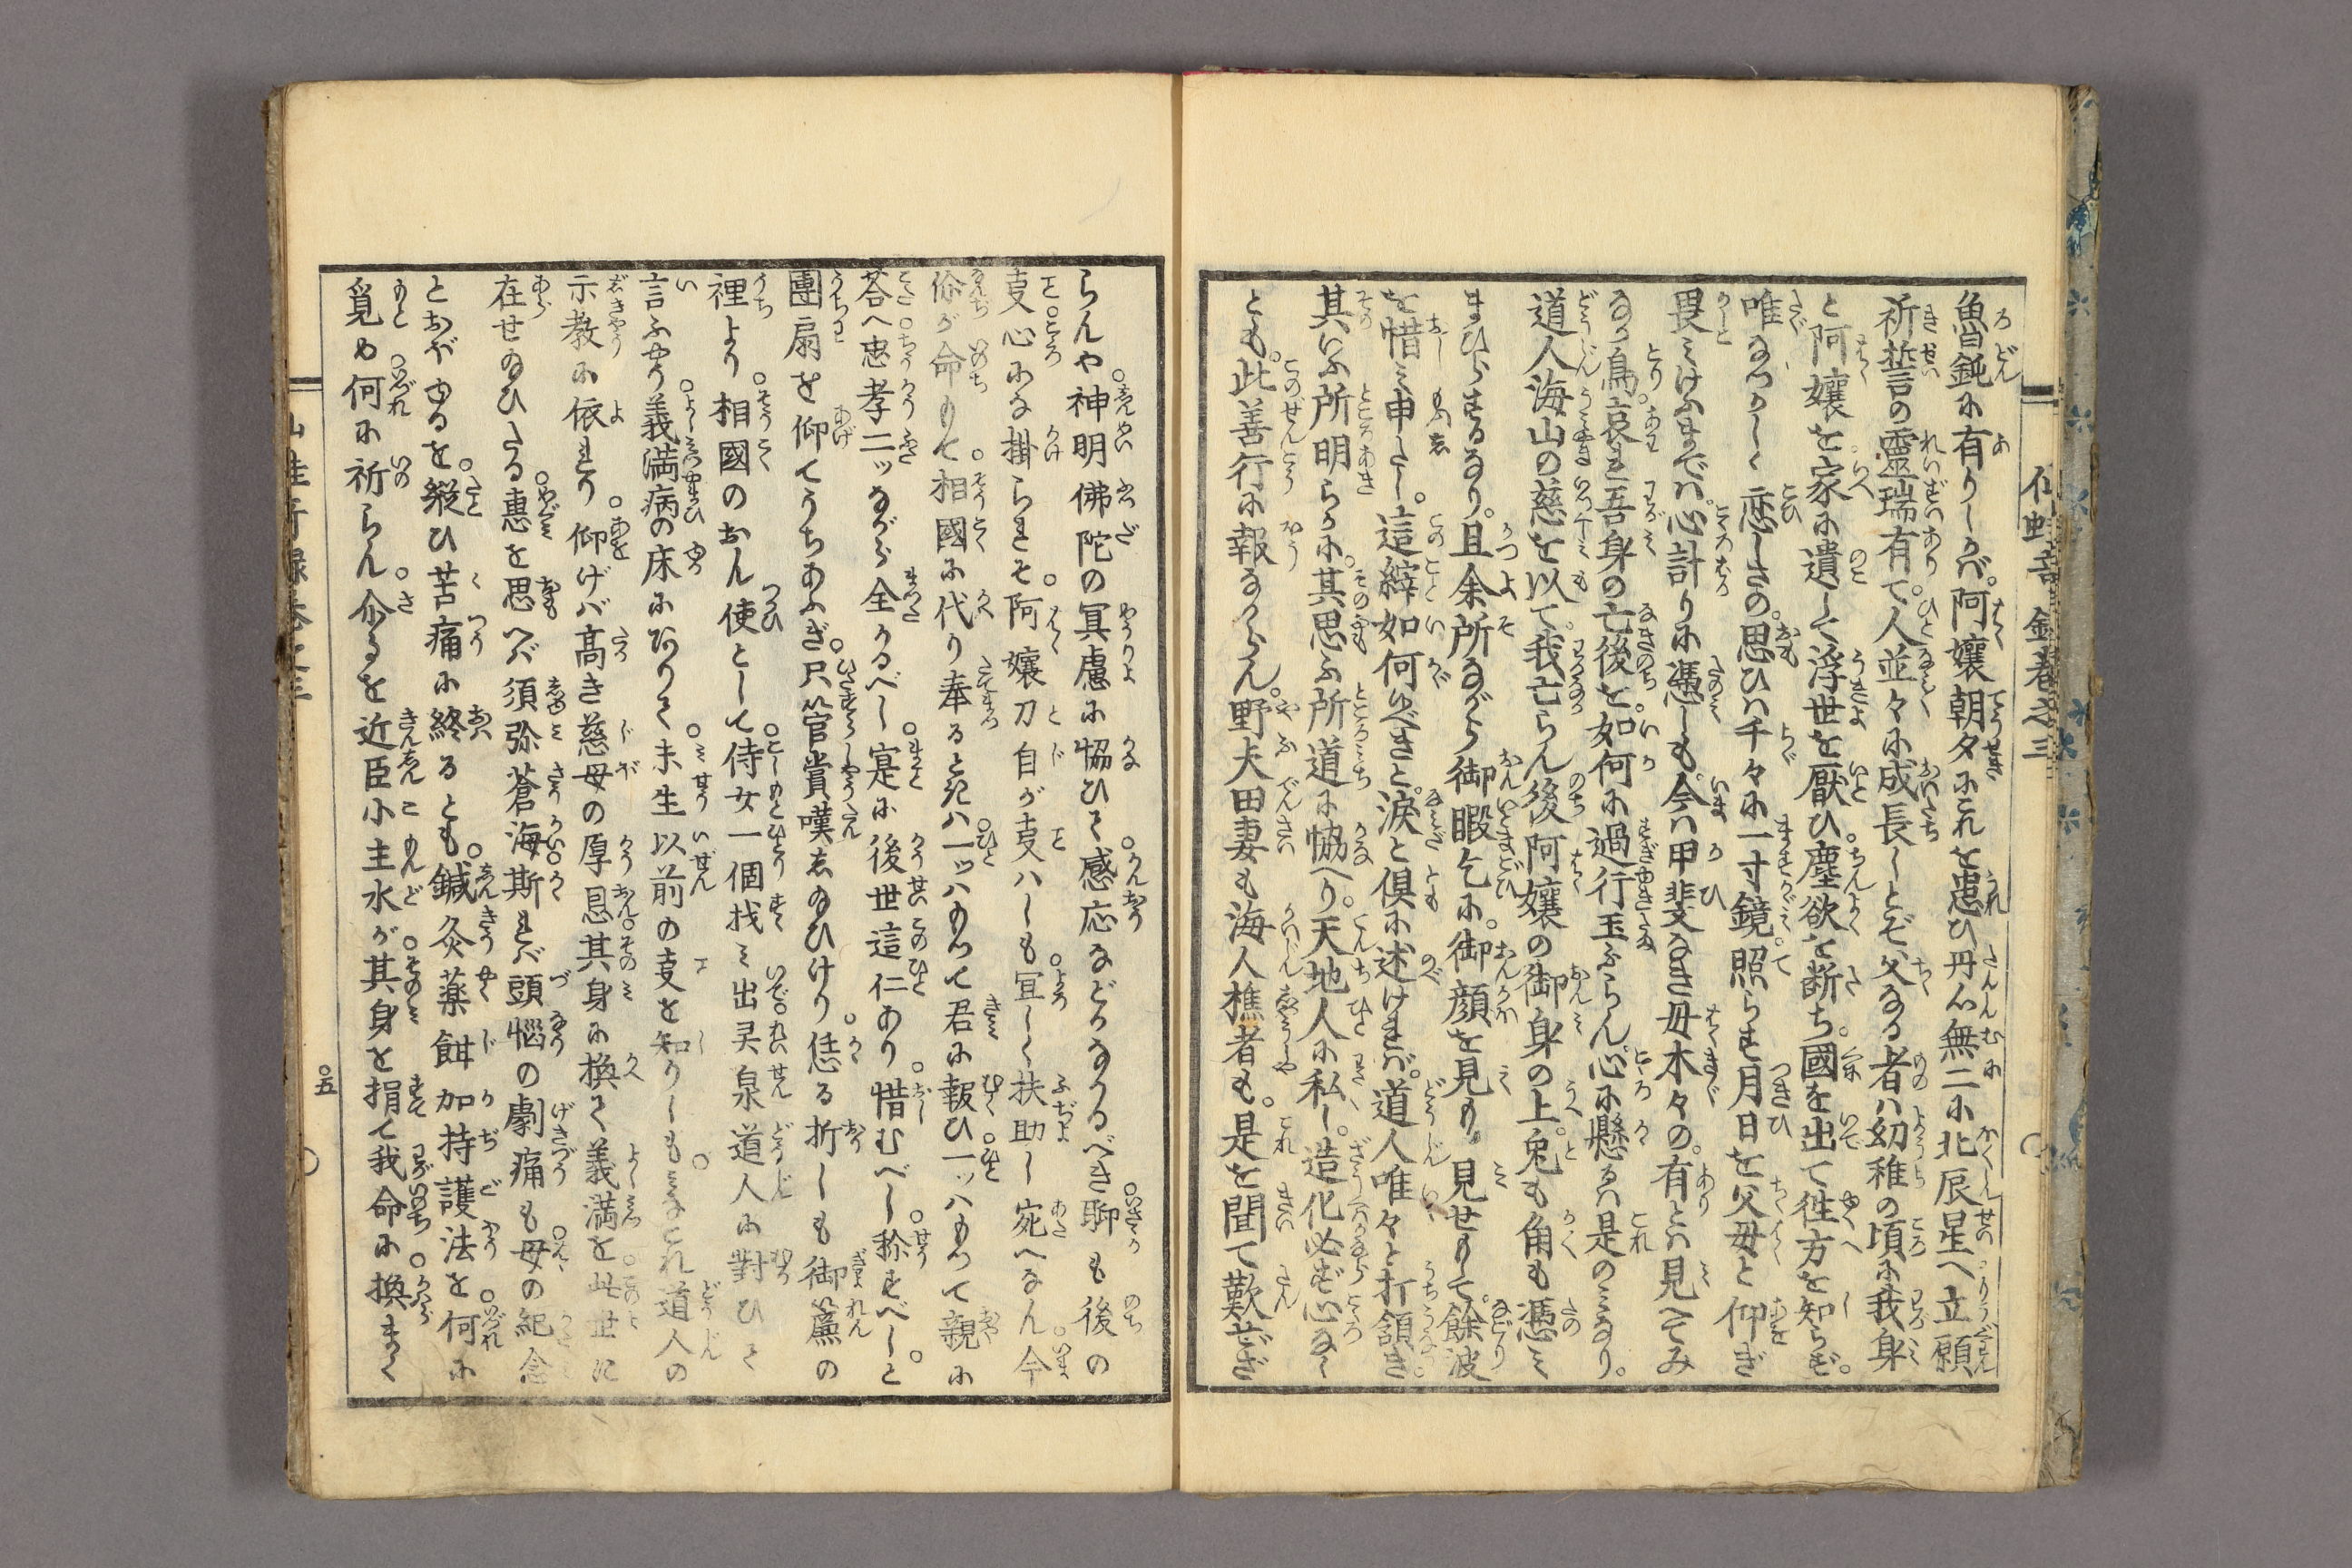 魯鈍に有りしかバ。阿孃朝夕にこれを患ひ丹心無二に北辰星へ立願
祈誓の靈瑞有て。人並々に成長しとぞ。父なる者ハ幼稚の頃に我身
と阿孃を家に遺して浮世を厭ひ。塵欲を断ち。國を出て徃方を知らず。
唯なつかしく恋しさの。思ひハ千々に一寸鏡。照らす月日を父母と仰ぎ
畏みけふまでハ。心計りに憑しも。今ハ甲斐なき母木々の。有とハ見へてみ
なし鳥。哀れ吾身の亡後を。如何に過行玉ふらん。心に懸るハ是のみなり。
道人海山の慈を以て。我亡らん後阿孃の御身の上。兎も角も憑み
まひらするなり。且余所ながら御暇乞に。御顔を見もし見せもして。餘波
を惜み申たし。這縡如何候べきと。涙と倶に述けれバ。道人唯々と打頷き。
其いふ所明らかに。其思ふ所道に恊へり。天地人に私し。造化必ず心なく
とも。此善行に報なからん。野夫田妻も海人樵者も。是を聞て歎ぜざ
らんや。神明佛陀の冥慮に恊ひて。感応などかなかるべき。聊も後の
支心にな掛られそ。阿孃刀自が支ハしも。宜しく扶助し宛へなん。今
你が命もて。相國に代り奉るときハ。一ッハもつて君に報ひ。一ッハもつて親に
荅へ。忠孝二ッながら全かるべし。寔に後世這仁あり。惜むべし。称すべしと。
團扇を仰てうちあふぎ。只管賞嘆ましゐひけり。恁る折しも御簾の
裡より。相國のおん使として。侍女一個找み出。灵泉道人に對ひて
言ふやう。義満病の床にありて。未生以前の支を知りしも。みなこれ道人の
示教に依れり。仰げバ高き慈母の厚恩。其身に換て義満を。此世に
在せゐひたる。惠を思へバ須弥蒼海。斯れバ頭悩の劇痛も。母の紀念
とおぼゆるを。縦ひ苦痛に終るとも。鍼灸薬餌加持護法を。何に
覓め何に祈らん。尒るを近臣小主水が。其身を捐て我命に。換まく
仙蛙奇録巻之三
○五